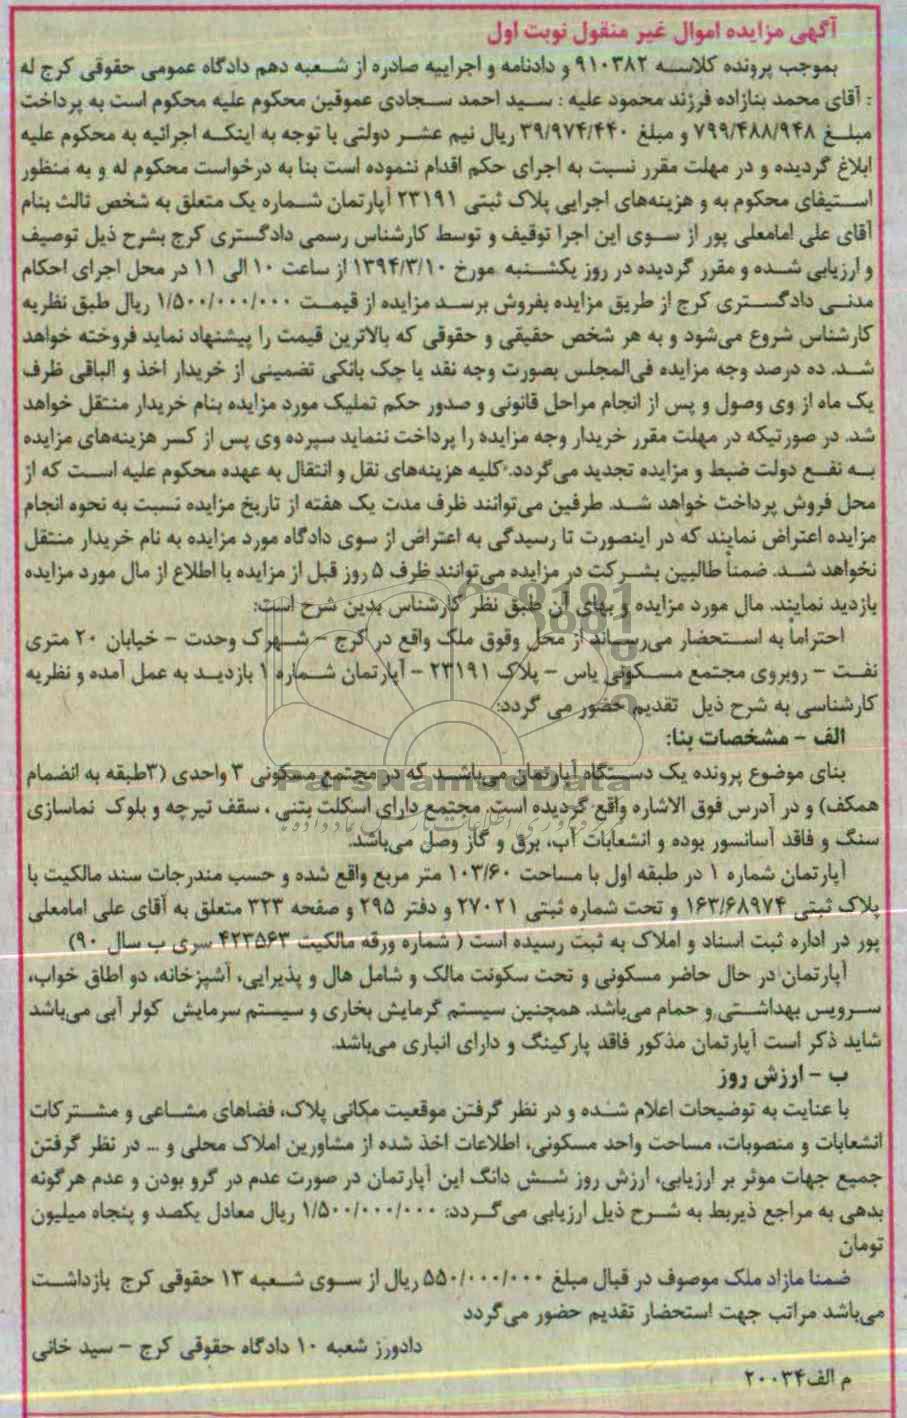 آگهی مزایده اموال غیر منقول نوبت اول
بموجب پرونده کلاسه ۹۱۰۳۸۲ و دادنامه و اجراییه صادره از شعبه دهم دادگاه عمومی حقوقی کرج له
: آقای محمد بنازاده فرزند محمود علیه : سید احمد سجادی عموقین محکوم علیه محکوم است به پرداخت
مبلغ ۷۹۹/۴۸۸/۹۴۸ و مبلغ ۳۹/۹۷۴/۴۴۰ ریال نیم عشر دولتی با توجه به اینکه اجرائیه به محکوم علیه
ابلاغ گردیده و در مهلت مقرر نسبت به اجرای حکم اقدام ننموده است بنا به درخواست محکوم له و به منظور
استیفای محکوم به و هزینه‌های اجرایی پلاک ثبتی ۲۳۱۹۱ آپارتمان شماره یک متعلق به شخص ثالث بنام
آقای علی امامعلی پور از سوی این اجرا توقیف و توسط کارشناس رسمی دادگستری کرج بشرح ذیل توصیف
و ارزیابی شده و مقرر گردیده در روز یکشنبه مورخ ۱۳۹۴/۳/۱۰ از ساعت ۱۰ الی ۱۱ در محل اجرای احکام
مدنی دادگستری کرج از طریق مزایده بفروش برسد مزایده از قیمت ۱/۵۰۰/۰۰۰/۰۰۰ ریال طبق نظریه
کارشناس شروع می‌شود و به هر شخص حقیقی و حقوقی که بالاترین قیمت را پیشنهاد نماید فروخته خواهد
شد. ده درصد وجه مزایده فی‌المجلس بصورت وجه نقد یا چک بانکی تضمینی از خریدار اخذ و الباقی ظرف
یک ماه از وی وصول و پس از انجام مراحل قانونی و صدور حکم تملیک مورد مزایده بنام خریدار منتقل خواهد
شد. در صورتیکه در مهلت مقرر خریدار وجه مزایده را پرداخت ننماید سپرده وی پس از کسر هزینه‌های مزایده
به نفع دولت ضبط و مزایده تجدید می‌گردد. کلیه هزینه‌های نقل و انتقال به عهده محکوم علیه است که از
محل فروش پرداخت خواهد شد. طرفین می‌توانند ظرف مدت یک هفته از تاریخ مزایده نسبت به نحوه انجام
مزایده اعتراض نمایند که در اینصورت تا رسیدگی به اعتراض از سوی دادگاه مورد مزایده به نام خریدار منتقل
نخواهد شد. ضمناً طالبین بشرکت در مزایده می‌توانند ظرف ۵ روز قبل از مزایده با اطلاع از مال مورد مزایده
بازدید نمایند. مال مورد مزایده و بهای آن طبق نظر کارشناس بدین شرح است:
احتراماً به استحضار می‌رساند از محل وقوق ملک واقع در کرج - شهرک وحدت - خیابان ۲۰ متری
نفت - روبروی مجتمع مسکونی یاس - پلاک ۲۳۱۹۱ - آپارتمان شماره ۱ بازدید به عمل آمده و نظریه
کارشناسی به شرح ذیل تقدیم حضور می گردد:
الف - مشخصات بنا:
بنای موضوع پرونده یک دستگاه آپارتمان می‌باشد که در مجتمع مسکونی ۳ واحدی (۳طبقه به انضمام
همکف) و در آدرس فوق الاشاره واقع گردیده است. مجتمع دارای اسکلت بتنی ، سقف تیرچه و بلوک نماسازی
سنگ و فاقد آسانسور بوده و انشعابات آب، برق و گاز وصل می‌باشد.
آپارتمان شماره ۱ در طبقه اول با مساحت ۱۰۳/۶۰ متر مربع واقع شده و حسب مندرجات سند مالکیت با
پلاک ثبتی ۱۶۳/۶۸۹۷۴ و تحت شماره ثبتی ۲۷۰۲۱ و دفتر ۲۹۵ و صفحه ۳۲۳ متعلق به آقای علی امامعلی
پور در اداره ثبت اسناد و املاک به ثبت رسیده است ( شماره ورقه مالکیت ۴۲۳۵۶۳ سری ب سال ۹۰)
آپارتمان در حال حاضر مسکونی و تحت سکونت مالک و شامل هال و پذیرایی، آشپزخانه، دو اطاق خواب،
سرویس بهداشتی و حمام می‌باشد. همچنین سیستم گرمایش بخاری و سیستم سرمایش کولر آبی می‌باشد
شاید ذکر است آپارتمان مذکور فاقد پارکینگ و دارای انباری می‌باشد.
ب - ارزش روز
با عنایت به توضیحات اعلام شده و در نظر گرفتن موقعیت مکانی پلاک، فضاهای مشاعی و مشترکات
انشعابات و منصوبات، مساحت واحد مسکونی، اطلاعات اخذ شده از مشاورین املاک محلی و ... در نظر گرفتن
جمیع جهات موثر بر ارزیابی، ارزش روز شش دانگ این آپارتمان در صورت عدم در گرو بودن و عدم هرگونه
بدهی به مراجع ذیربط به شرح ذیل ارزیابی می‌گردد: ۱/۵۰۰/۰۰۰/۰۰۰ ریال معادل یکصد و پنجاه میلیون
تومان
ضمنا مازاد ملک موصوف در قبال مبلغ ۵۵۰/۰۰۰/۰۰۰ ریال از سوی شعبه ۱۳ حقوقی کرج بازداشت
می‌باشد مراتب جهت استحضار تقدیم حضور می‌گردد
دادورز شعبه ۱۰ دادگاه حقوقی کرج - سید خانی
م الف۲۰۰۳۴
ParsNamadData